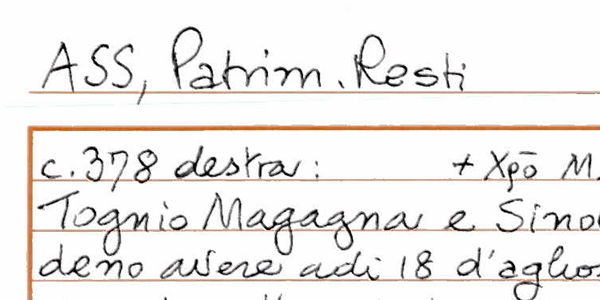 ASS, Patrim. Resti
c. 378 destra: + Xp̄o M.
Tognio Magagna e
deno avere adi 18